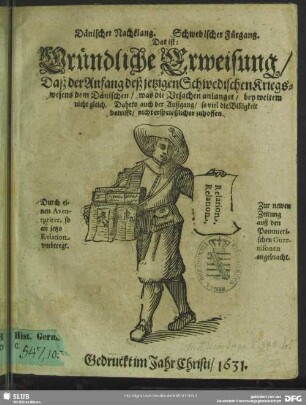 Dänischer Nachklang. Schwedischer Fürgang.
Das ist:
Gründliche Erweisung/
Daß der Anfang deß jetzigen Schwedischen Kriegs-
wesens dem Dänischen/ was die Ursachen anlanget/ bey weitem
nicht gleich. Dahero auch der Außgang/ so viel die Billigkeit
betrifft/ noch ersprießlicher zuhoffen.
Durch ei-
nen Aven-
turirer, so
an jetzo
Relation
umbtregt.
Relation.
Relation.
Zur newen
Zeitung
auß den
Pommeri-
schen Guar-
nisonen
angebracht.
Hist. Germ.
C.
547,10.
Gedruckt im Jahr Christi/ 1631.
SLUB
DFG